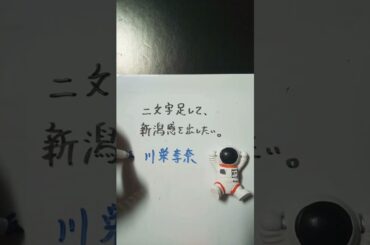 二文字足して、
新潟感を出したい。
川栄李奈